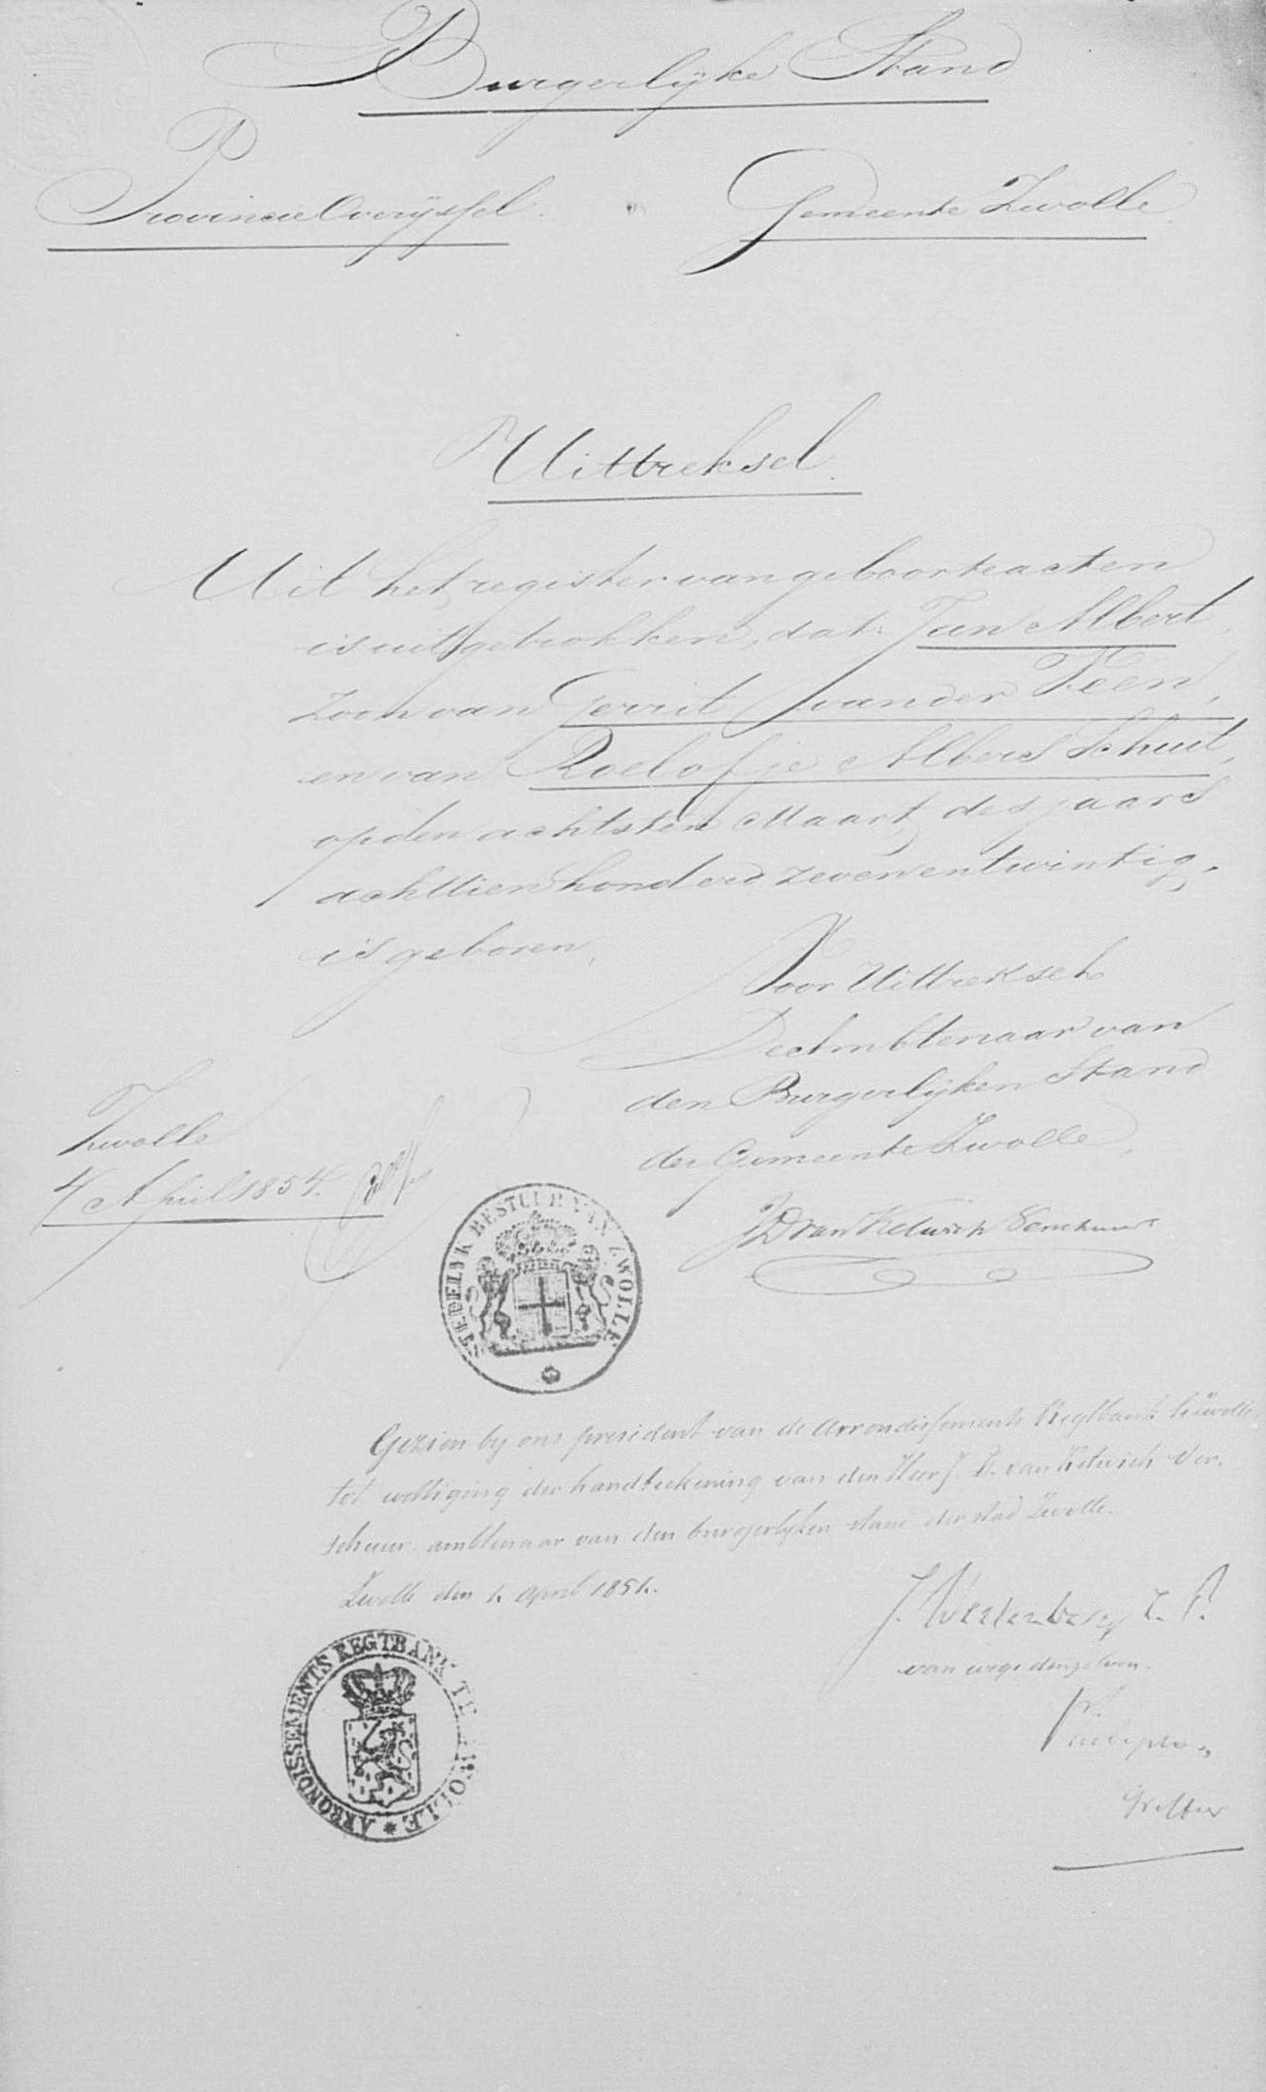 Burgerlijke Stand
Provincie Overijssel. Gemeente Zwolle.
Uittreksel.
Uit het register van geboorteacten
is uitgetrokken, dat Jan Albert,
zoon van Gerrit van der Veen,
en van Roelofje Albers Schuit,
op den achtsten Maart des jaars
achttienhonderd zevenentwintig,
is geboren,
Voor Uittreksel
De Ambtenaar van
den Burgerlijken Stand
der Gemeente Zwolle,
Zwolle
4 April 1854.
JD van Ketwich Verschuur
STEDELYK BESTUUR VAN ZWOLLE
Gezien by ons president van de Arrondissements Regtbank te Zwolle
tot wettiging der handteekening van den Heer J. D. van Ketwich Ver-
schuur ambtenaar van den burgerlyken stand der stad Zwolle.
Zwolle den 4 April 1854.
van wege denzelven.
Griffier
ARRONDISSEMENTS REGTBANK TE ZWOLLE